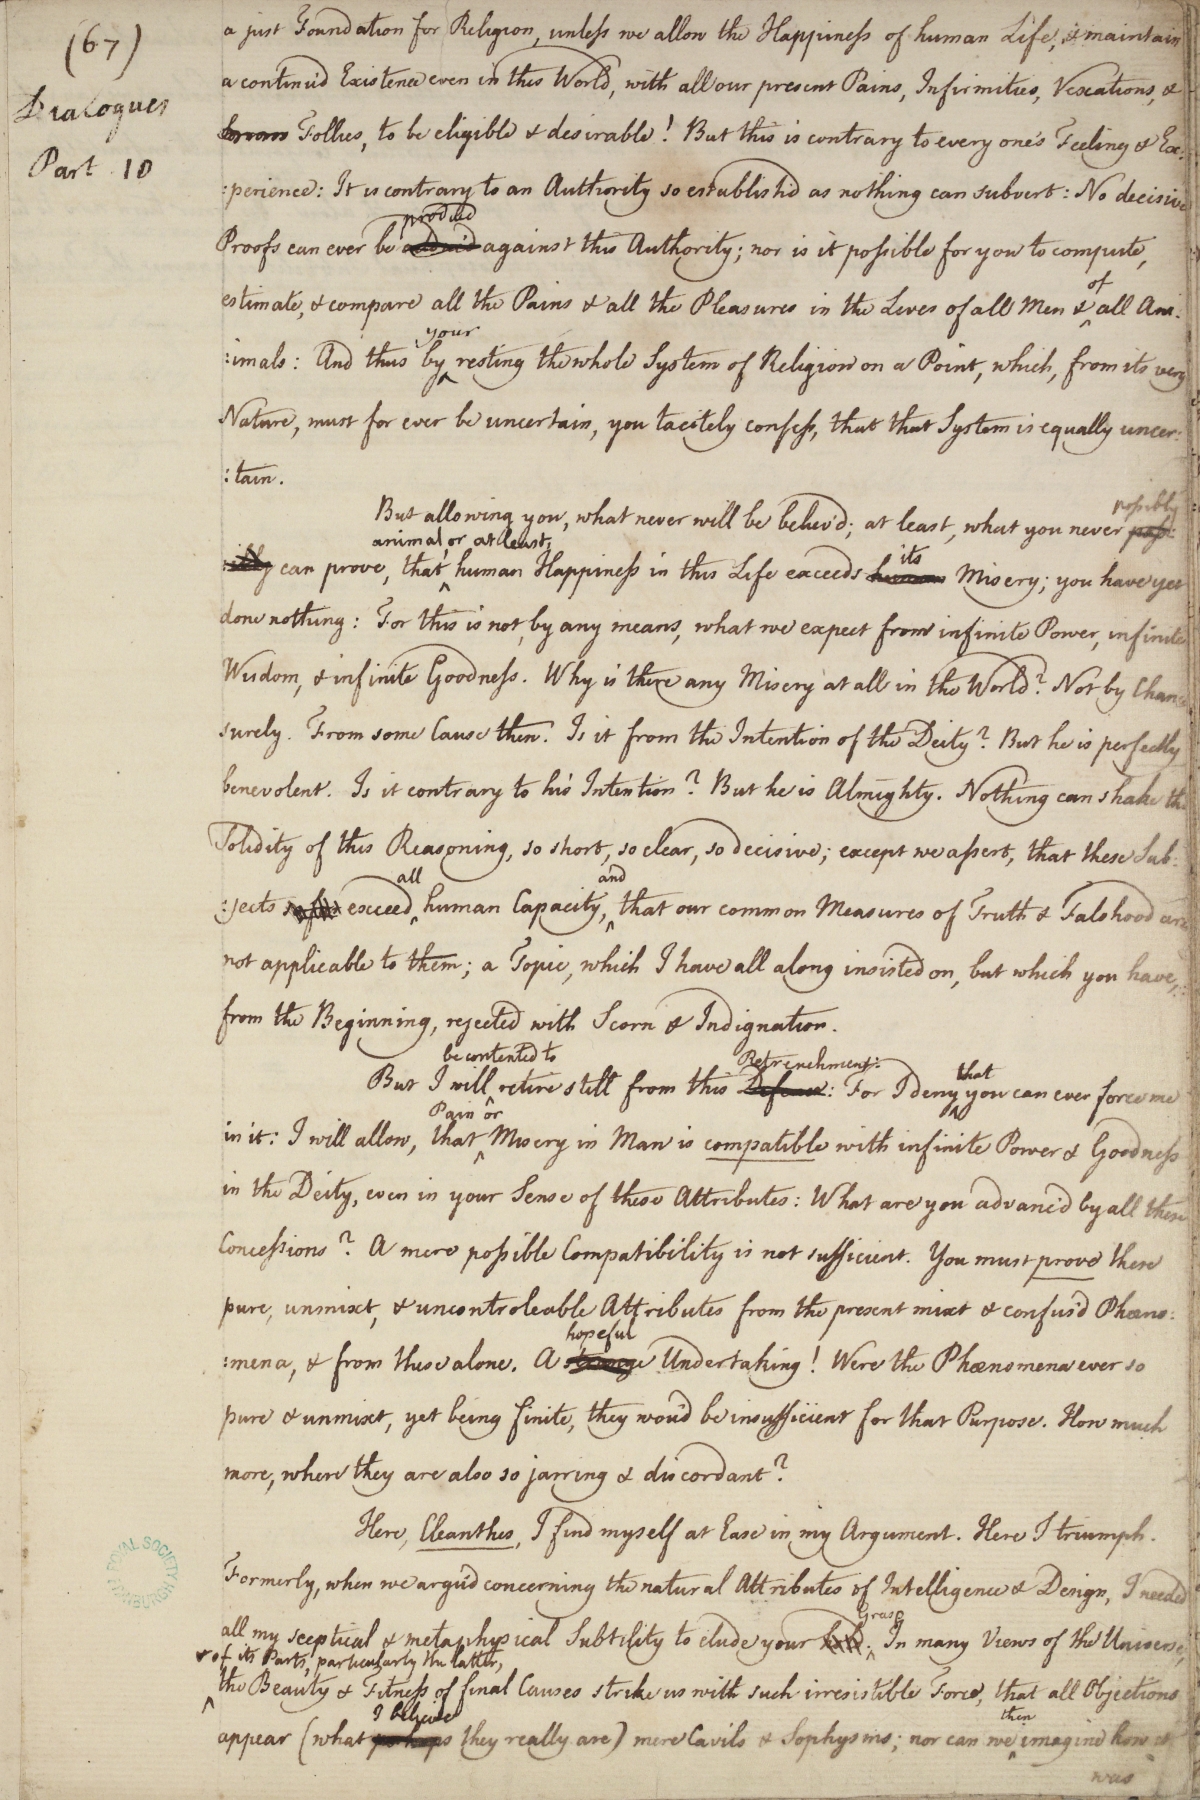 (67)
Dialogues
Part. 10
a just Foundation for Religion, unless we allow the Happiness of human Life, & maintain
a continu'd Existence even in this World, with all our present Pains, Infirmities, Vexations, &
Follies, to be eligible & desirable! But this is contrary to every one's Feeling & Ex:
:perience: It is contrary to an Authority so establish'd as nothing can subvert: No decisive
produc'd
Proofs can ever be adduc'd against this Authority; nor is it possible for you to compute,
of
estimate, & compare all the Pains & all the Pleasures in the Lives of all Men & all Ani:
your
:imals: And thus by resting the whole System of Religion on a Point, which, from its very
Nature, must for ever be uncertain, you tacitely confess, that that System is equally uncer:
:tain.
possibly
But allowing you, what never will be believ'd; at least, what you never poss:
animal or at least, its
:ibly can prove, that human Happiness in this Life exceeds human Misery; you have yet
done nothing: For this is not, by any means, what we expect from infinite Power, infinite
Wisdom, & infinite Goodness. Why is there any Misery at all in the World? Not by Chance
surely. From some Cause then. Is it from the Intention of the Deity? But he is perfectly
benevolent. Is it contrary to his Intention? But he is Almighty. Nothing can shake the
Solidity of this Reasoning, so short, so clear, so decisive; except we assert, that these Sub:
all and
:jects exceed human Capacity, that our common Measures of Truth & Falshood are
not applicable to them; a Topic, which I have all along insisted on, but which you have,
from the Beginning, rejected with Scorn & Indignation.
be contented to Retrenchment: that
But I will retire still from this Defence: For I deny you can ever force me
Pain or
in it: I will allow, that Misery in Man is compatible with infinite Power & Goodness
in the Deity, even in your Sense of these Attributes: What are you advanc'd by all these
Concessions? A mere possible Compatibility is not sufficient. You must prove these
pure, unmixt, & uncontroleable Attributes from the present mixt & confus'd Phæno:
hopeful
:mena, & from these alone. A strange Undertaking! Were the Phænomena ever so
pure & unmixt, yet being finite, they wou'd be insufficient for that Purpose. How much
more, where they are also so jarring & discordant?
Here, Cleanthes, I find myself at Ease in my Argument. Here I triumph.
Formerly, when we argu'd concerning the natural Attributes of Intelligence & Design, I needed
Grasp
all my sceptical & metaphysical Subtility to elude your. In many Views of the Universe,
& of its Parts, particularly the latter,
the Beauty & Fitness of final Causes strike us with such irresistible Force, that all Objections
I believe then
appear (what perhaps they really are) mere Cavils & Sophysms; nor can we imagine how it
was
ROYAL SOCIETY